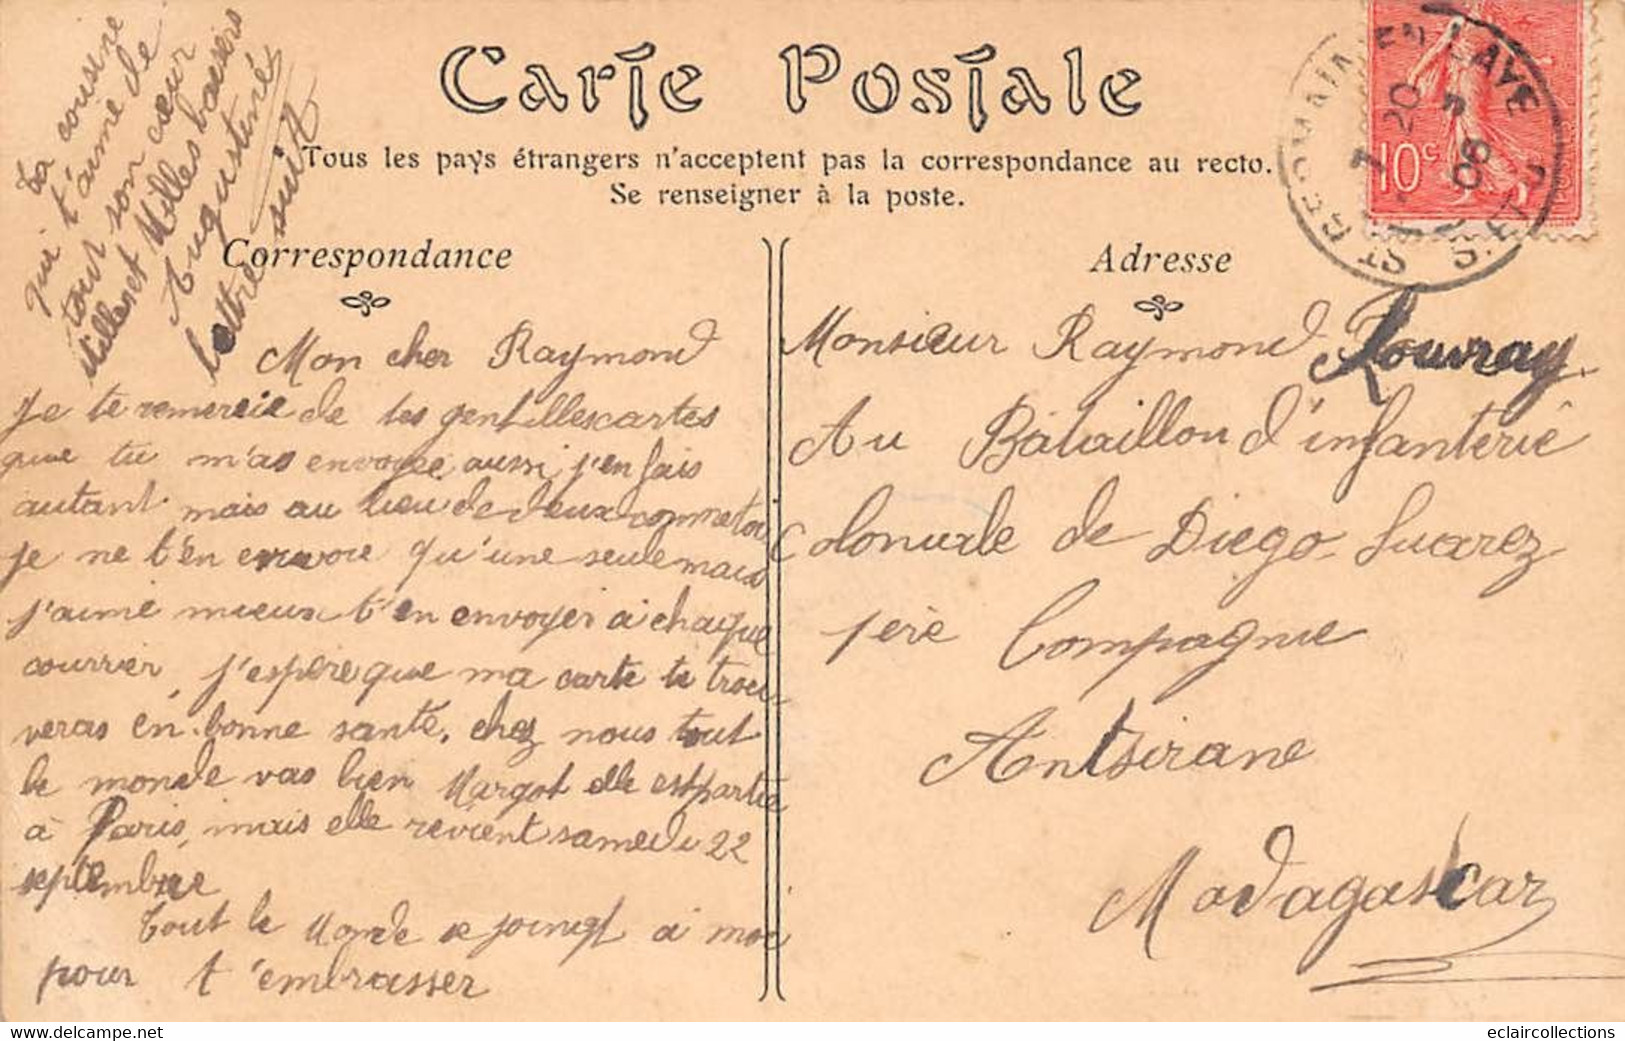 Carte Postale
Tous les pays étrangers n'acceptent pas la correspondance au recto.
Se renseigner à la poste.
Correspondance
Adresse
Mon cher Raymond
Je te remercie de tes gentilles cartes
que tu m'as envoyée aussi j'en fais
autant mais au lieu de deux comme toi
je ne t'en envoie qu'une seule mais
j'aime mieux t'en envoyer à chaque
courrier, j'espère que ma carte te trou-
veras en bonne santé, chez nous tout
le monde vas bien Margot elle est partie
à Paris, mais elle revient samedi 22
septembre
Tout le Monde se joingt à moi
pour t'embrasser
Ta cousine
qui t'aime de
tout son cœur
Milles et Milles baisers
Augustine
lettre suit
Monsieur Raymond Louvray
Au Bataillon d'infanterie
Coloniale de Diego Suarez
1ère Compagnie
Antsirane
Madagascar
10c
ST GERMAIN EN LAYE
S. ET O.
7 20
06
eclaircollections